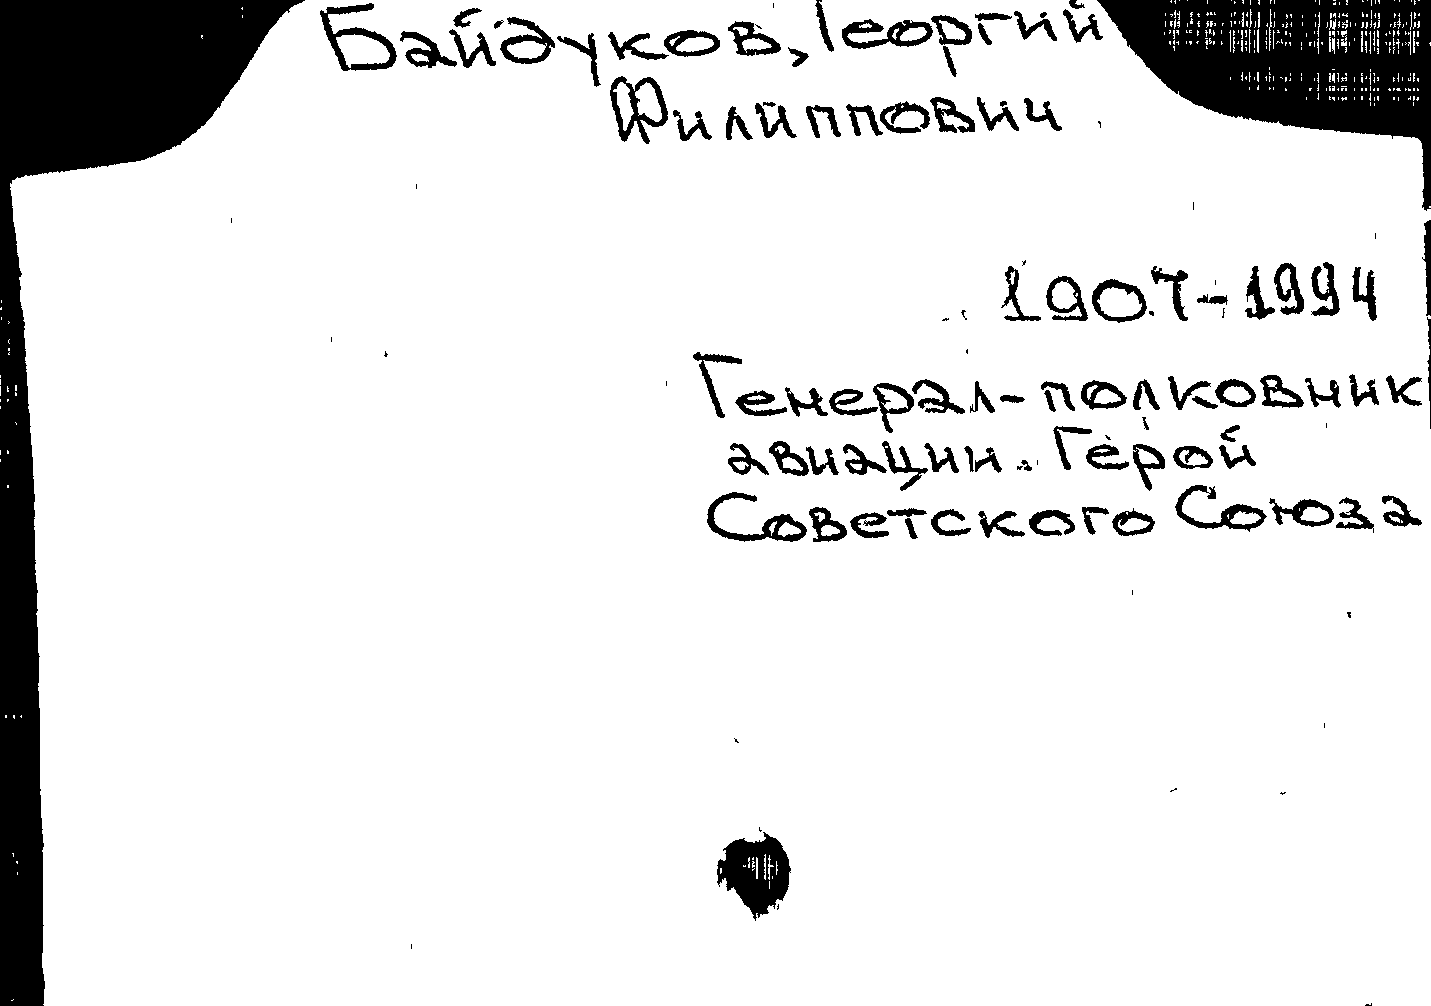 Байдуков, Георгий
Филиппович
1907-1994
Генерал-полковник
авиации. Герой
Советского Союза